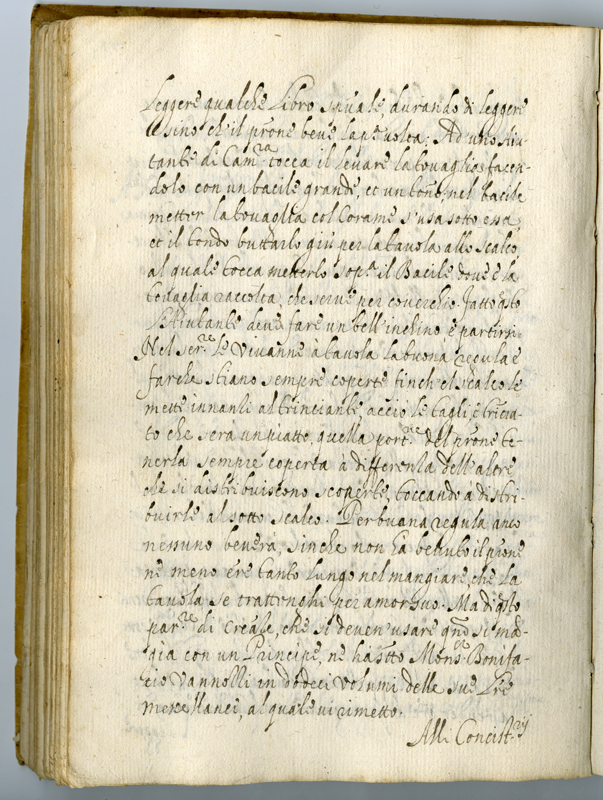 Leggere qualche libro sp̃uale, durando di leggere
sino ch'il prõne beve la p.ª volta. Ad uno Aiu-
tante di Cam.ra tocca il levare la tovaglia, facen-
dolo con un bacile grande, et un tondo, nel bacile
metter la tovaglia col Corame s'usa sotto essa,
et il tondo buttarlo giù per la tavola allo scalco
al quale tocca metterlo sop.ª il Bacile dove è la
tovaglia raccolta, che serve per coverchio. Fatto q̃sto
l'Aiutante deve fare un bell'inchino e partirsi.
Nel ser.re le vivanne à tavola la buona regula è
far che stiano sempre coperte finch'el scalco le
mette innanti al trinciante, acciò le tagli, e trincia-
to che serà un piatto, quella port.ne del prõne te-
nerla sempre coperta à differenza dell'altre,
che si distribuiscono scoperte, toccando à distri-
buirle al sotto scalco. Per buona regula anco
nessuno beverà, sinche non hà bevuto il prõne
nè meno ere tanto lungo nel mangiare, che la
tavola se trattenghi per amor suo. Ma di q̃sto
par.re di creãle, che si deven'usare q̃no si ma-
gia con un Principe, nè ha s̃tto Mons.re Bonifa-
cio Vannolli in dodeci volumi delle sue l̃re
mescellanee, al quale vi rimetto.
Alli Concist.rij